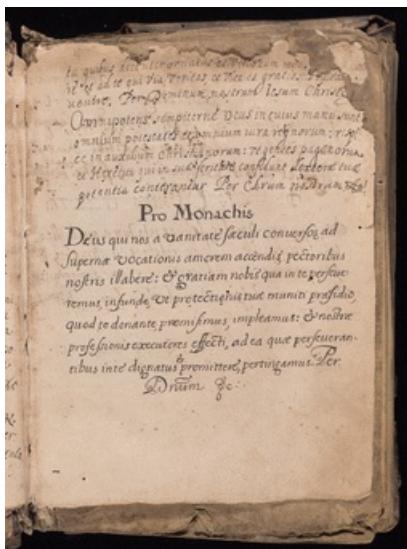 ta quibus
re et ad te qui via veritas, et vita es gratias
Per Dominum nostrum Iesum Christu
Omnipotens sempiterne Deus in cuius manu sunt
omnium potestates et omnium iura regnorum:
et in auxilium Christianorum: ut gentes paganorum
et qui in sua feritate confidunt dextere tue
potentia conterantur Per Chrum nostrum
Pro Monachis
Deus qui nos a vanitate sæculi conversos ad
supernæ vocationis amorem accendis, pectoribus
nostris illabere: & gratiam nobis qua in te perseve
remus, infunde, ut protectionis tuæ muniti præsidio,
quod te donante promisimus, impleamus: & nostræ
professionis executores effecti, ad ea quæ perseveran-
tibus in te dignatus es promittere, pertingamus. Per
Dnum &c.